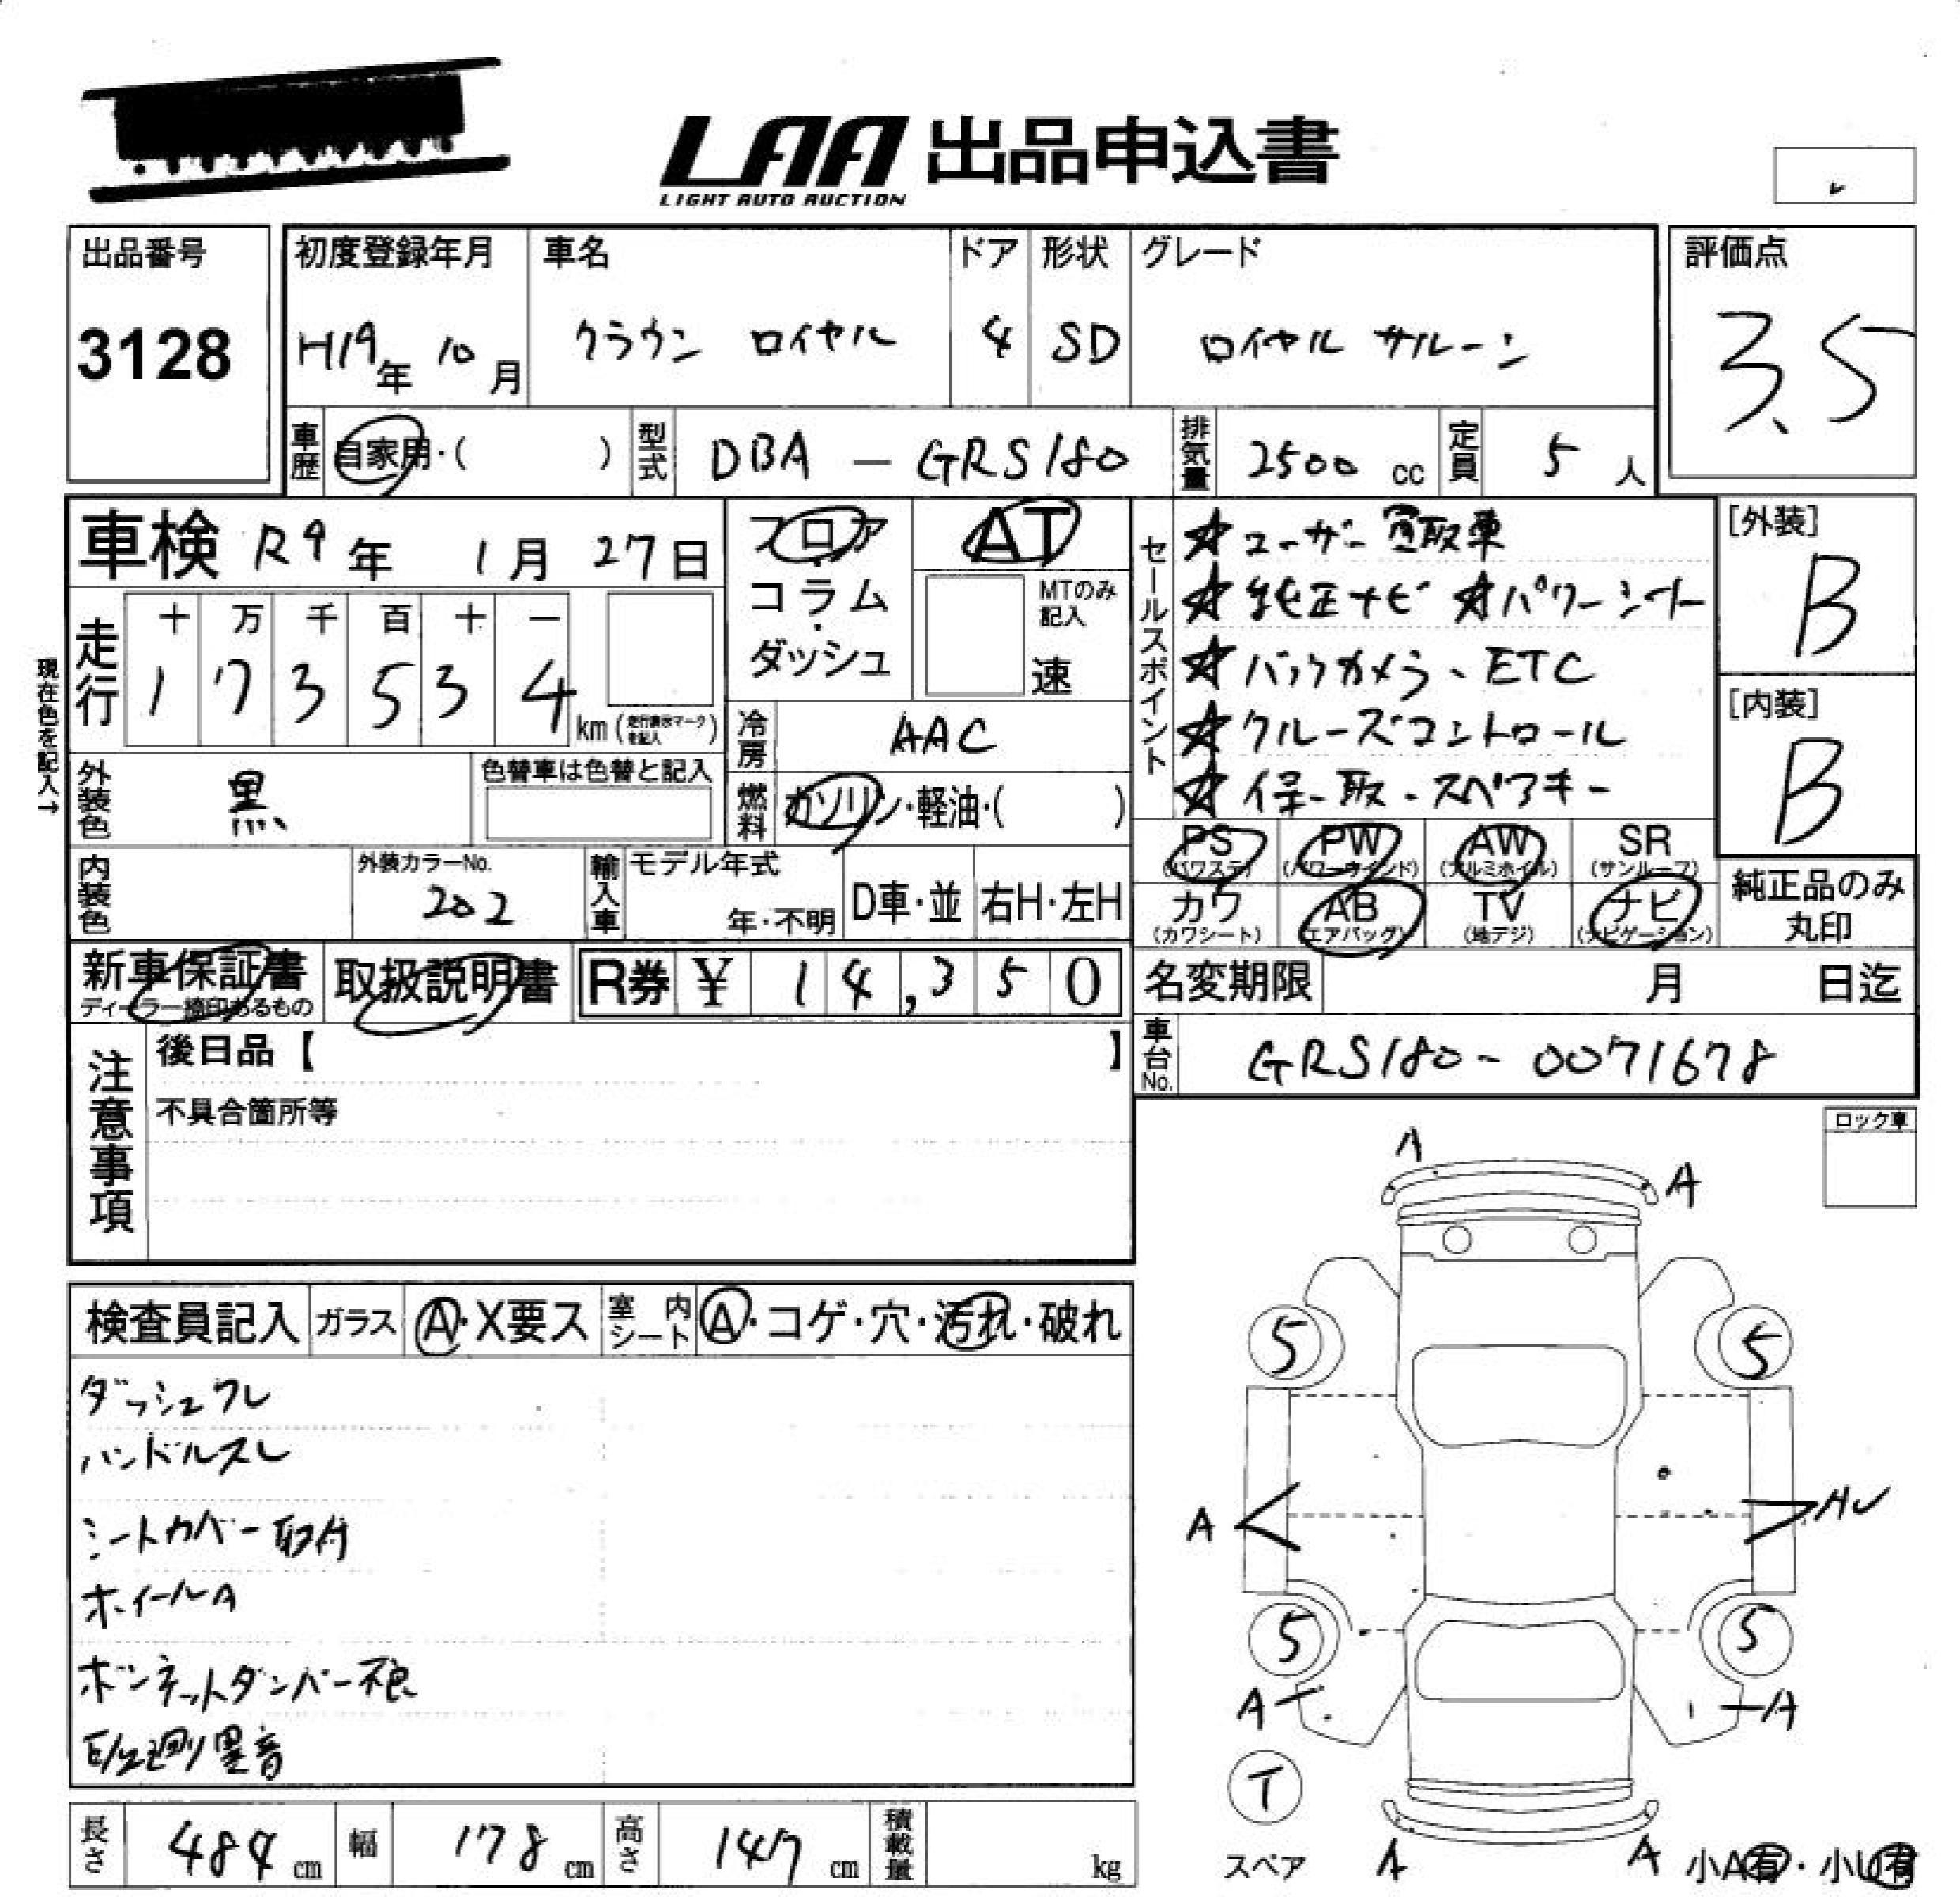 LAA 出品申込書
LIGHT AUTO AUCTION
出品番号
3128
初度登録年月
H19年 10月
車名
クラウン ロイヤル
ドア
4
形状
SD
グレード
ロイヤル サルーン
評価点
3.5
車歴 自家用・( )
型式 DBA - GRS180
排気量 2500 cc
定員 5 人
車検 R9年 1月 27日
現在色を記入→
走行
十 万 千 百 十 一
1 7 3 5 3 4
km (走行表示マークを記入)
フロア・コラム・ダッシュ
AT
MTのみ記入
速
冷房 AAC
燃料 ガソリン・軽油・( )
セールスポイント
☆ユーザー買取車
☆純正ナビ ☆パワーシート
☆バックカメラ、ETC
☆クルーズコントロール
☆保-取-スペアキー
[外装]
B
[内装]
B
外装色 黒
色替車は色替と記入
内装色
外装カラーNo.
202
輸入車
モデル年式
年・不明
D車・並
右H・左H
PS (パワステ)
PW (パワーウインド)
AW (アルミホイル)
SR (サンルーフ)
カワ (カワシート)
AB (エアバッグ)
TV (地デジ)
ナビ (ナビゲーション)
純正品のみ丸印
新車保証書
ディーラー捺印あるもの
取扱説明書
R券 ¥ 14,350
名変期限 月 日迄
車台No. GRS180-0071678
注意事項
後日品【 】
不具合箇所等
ロック車
検査員記入
ガラス A・X要ス
室内シート A・コゲ・穴・汚れ・破れ
ダッシュワレ
ハンドルスレ
シートカバー取付
ホイールA
ボンネットダンパー不良
足廻り異音
A
A
5
5
A
AU
5
5
A
A
T
スペア
A
A
小A有・小U有
長さ 484 cm
幅 178 cm
高さ 147 cm
積載量 kg